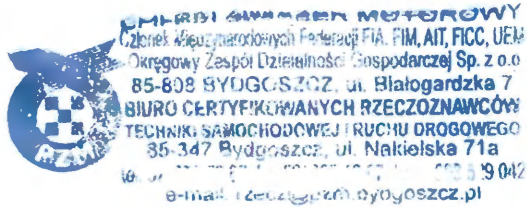 POLSKI ZWIĄZEK MOTOROWY
Członek Międzynarodowych Federacji FIA, FIM, AIT, FICC, UEM
Okręgowy Zespół Działalności Gospodarczej Sp. z o.o
85-808 BYDGOSZCZ, ul. Białogardzka 7
BIURO CERTYFIKOWANYCH RZECZOZNAWCÓW
TECHNIKI SAMOCHODOWEJ I RUCHU DROGOWEGO
85-347 Bydgoszcz, ul. Nakielska 71a
tel. 042
e-mail: rzecz@pzm.bydgoszcz.pl
PZM